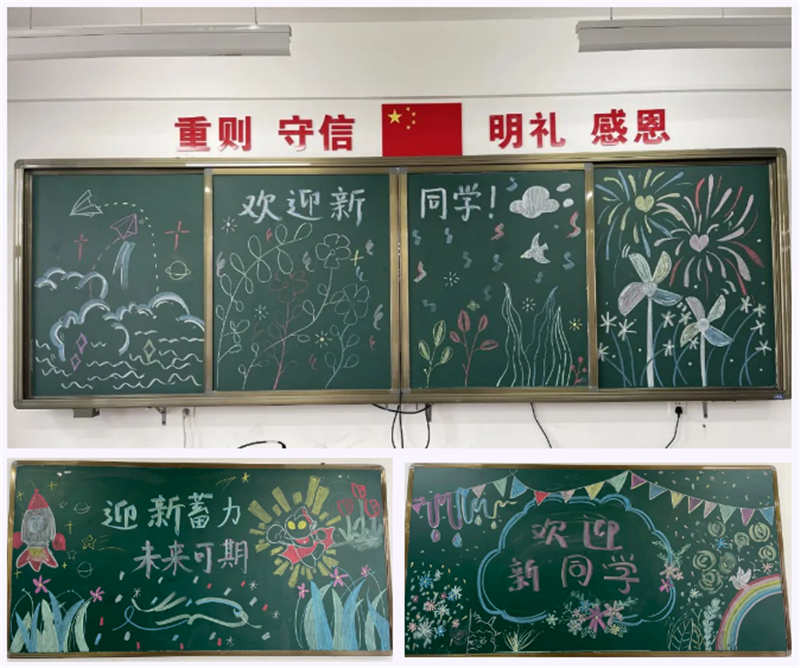 重则 守信 明礼 感恩
欢迎新同学!
迎新蓄力
未来可期
欢迎
新同学